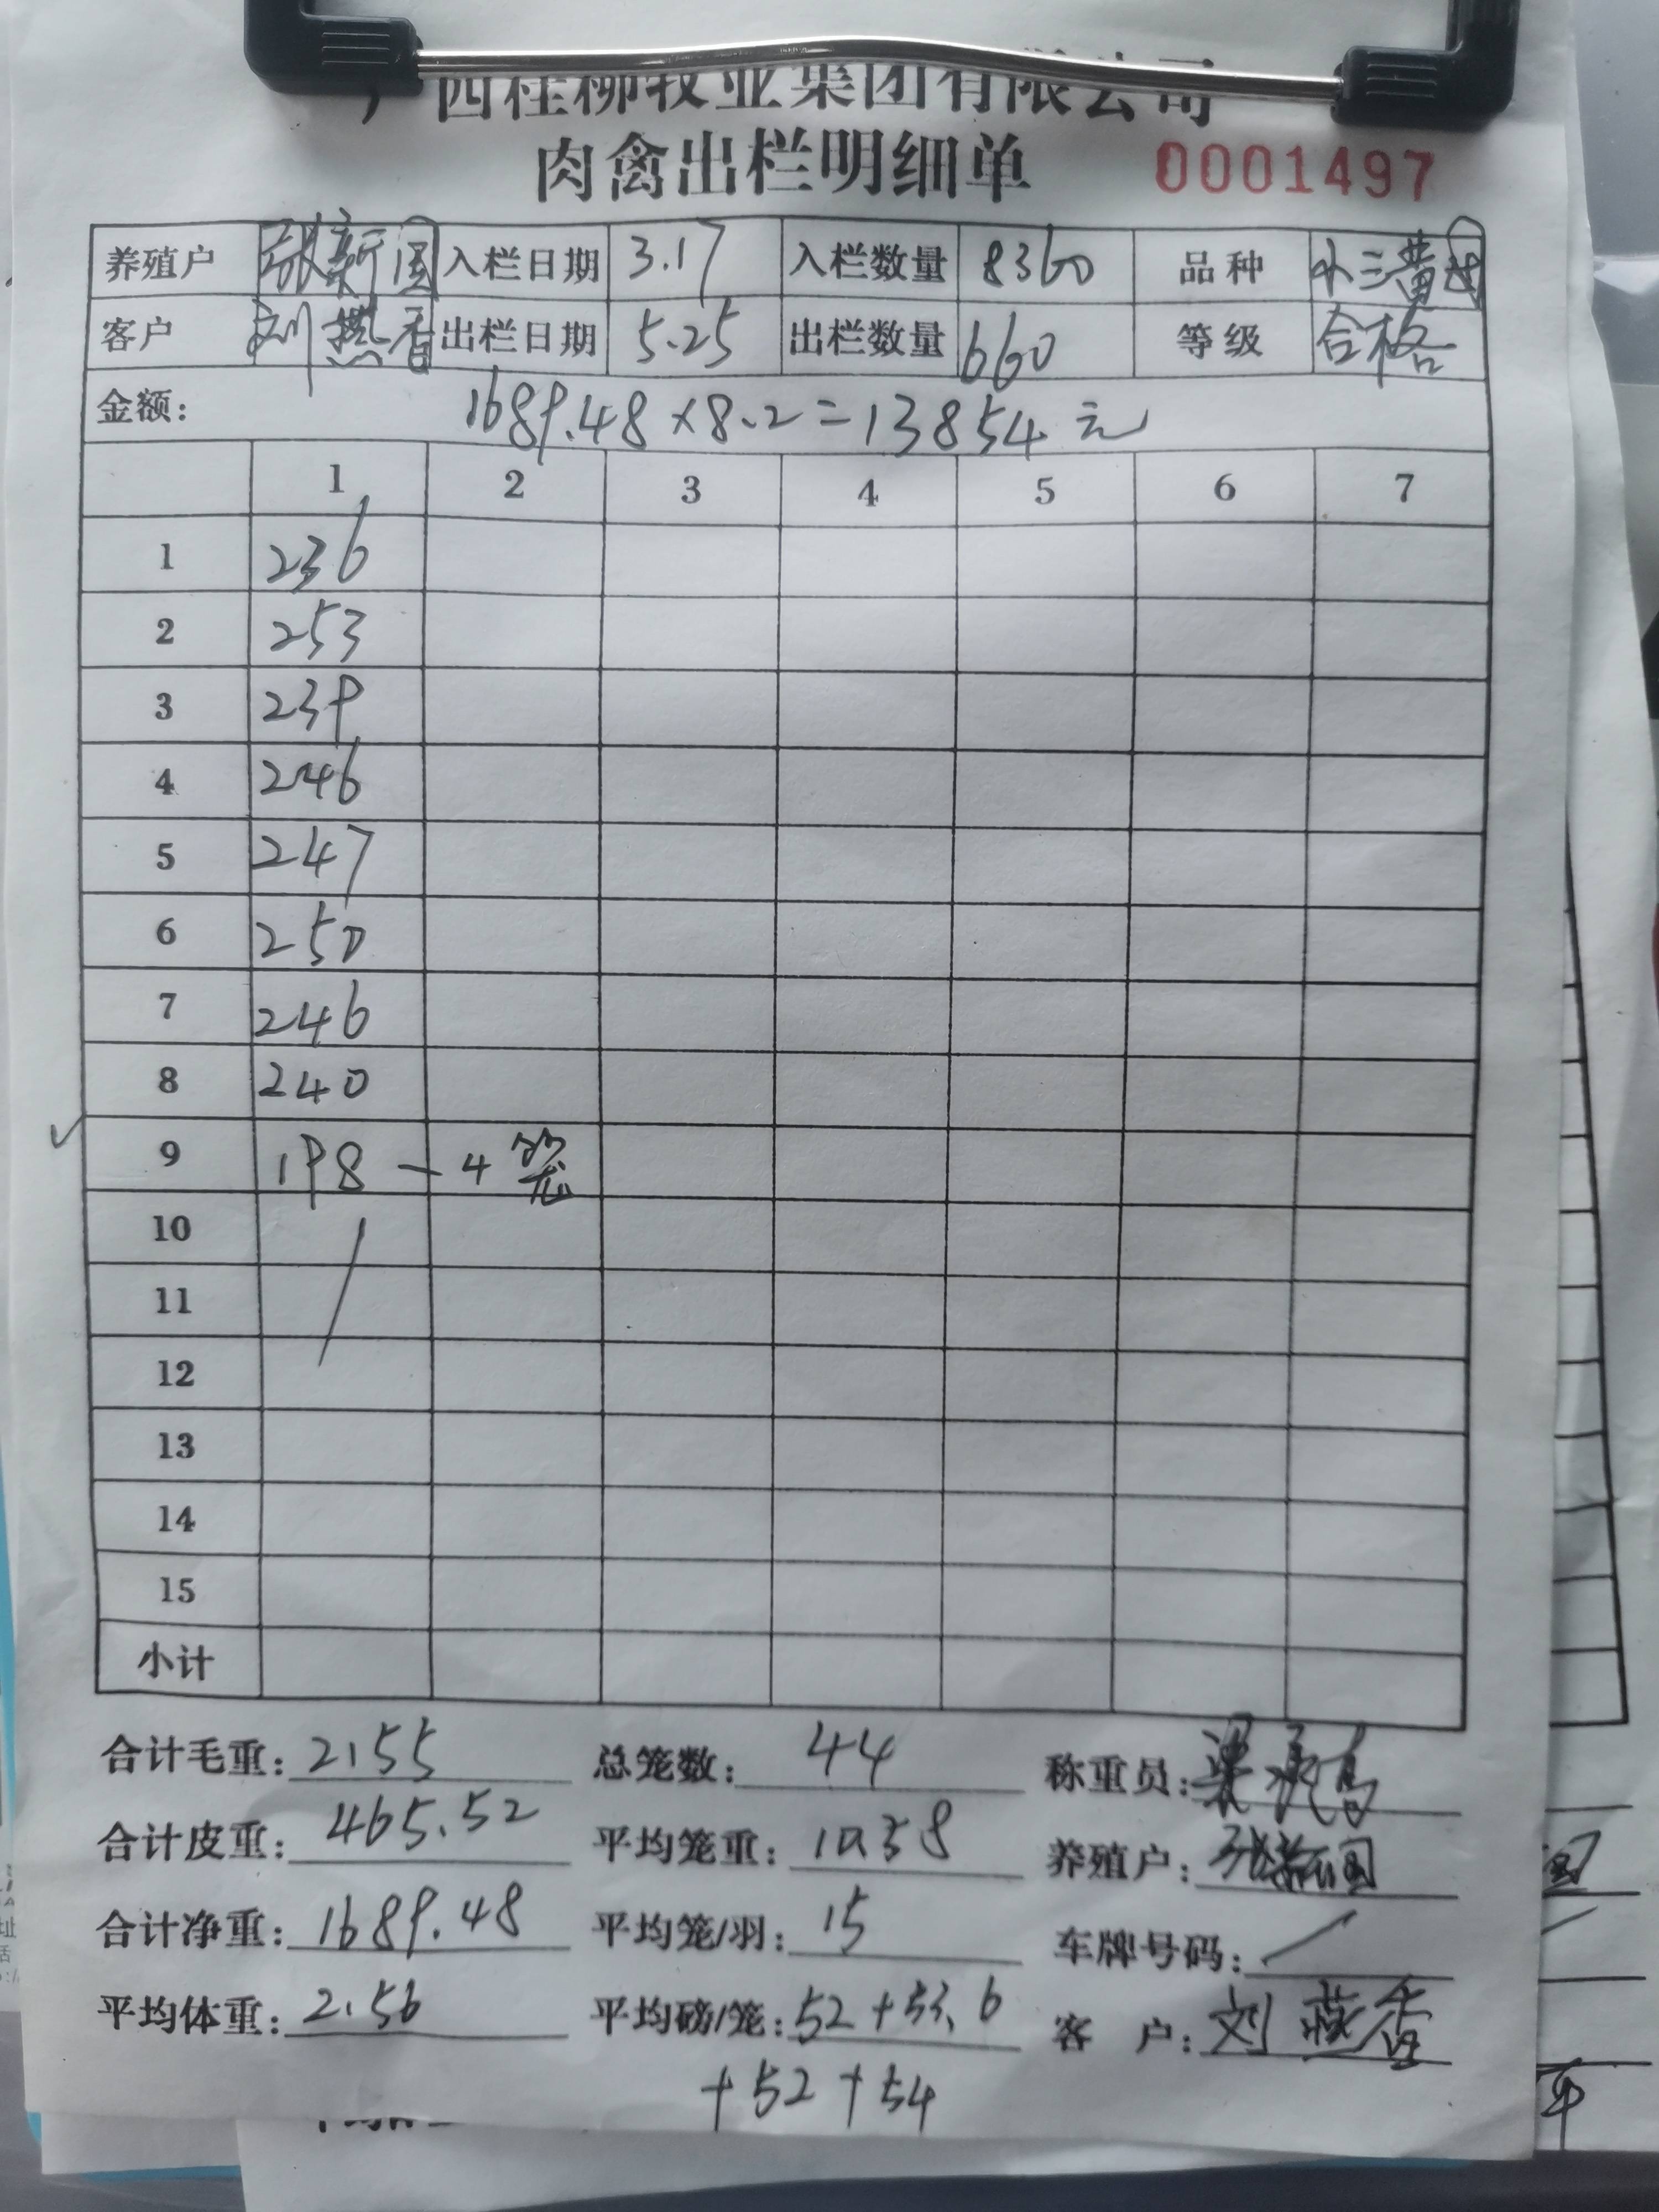 广西桂柳牧业集团有限公司
肉禽出栏明细单 0001497
养殖户 张新国 入栏日期 3.17 入栏数量 8360 品种 小三黄母
客户 刘燕香 出栏日期 5.25 出栏数量 660 等级 合格
金额: 1689.48×8.2=13854元
1 2 3 4 5 6 7
1 236
2 253
3 239
4 246
5 247
6 250
7 246
8 240
9 198 - 4笼
10
11
12
13
14
15
小计
合计毛重: 2155 总笼数: 44 称重员:
合计皮重: 465.52 平均笼重: 10.58 养殖户: 张新国
合计净重: 1689.48 平均笼/羽: 15 车牌号码: /
平均体重: 2.56 平均磅/笼: 52+53.6 客 户: 刘燕香
+52+54